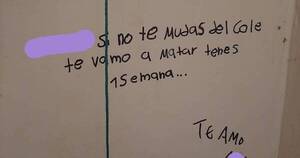 si no te mudas del cole
te vamo a matar tenes
1 semana...
TE AMO